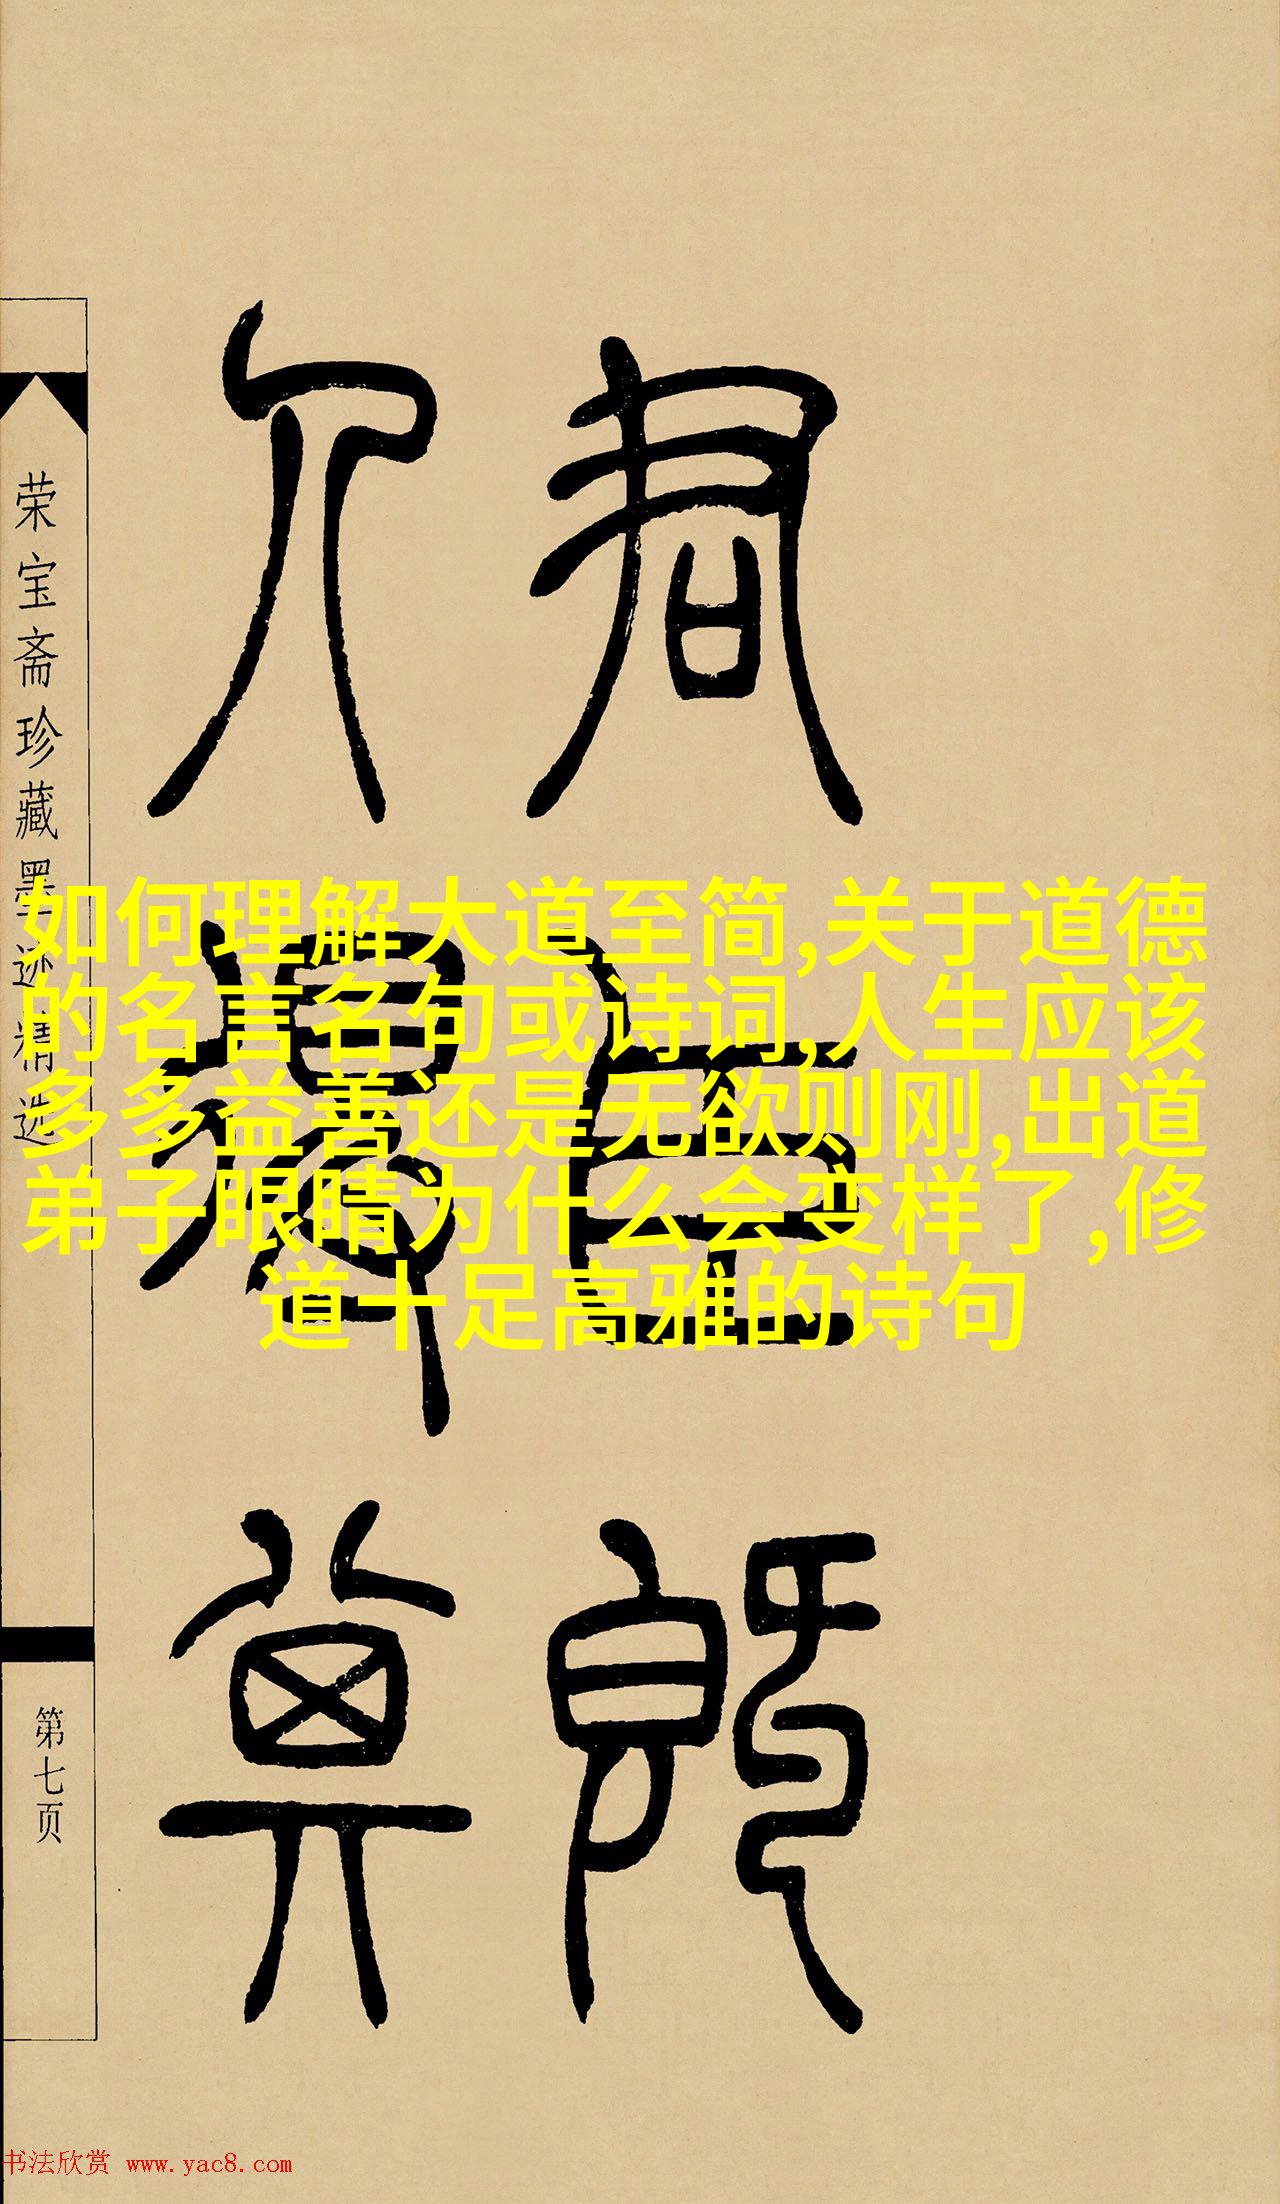 君臣既
荣宝斋珍藏墨迹精选
第七页
如何理解大道至简,关于道德
的名言名句或诗词,人生应该
多多益善还是无欲则刚,出道
弟子眼睛为什么会变样了,修
道十足高雅的诗句
书法欣赏 www.yac8.com